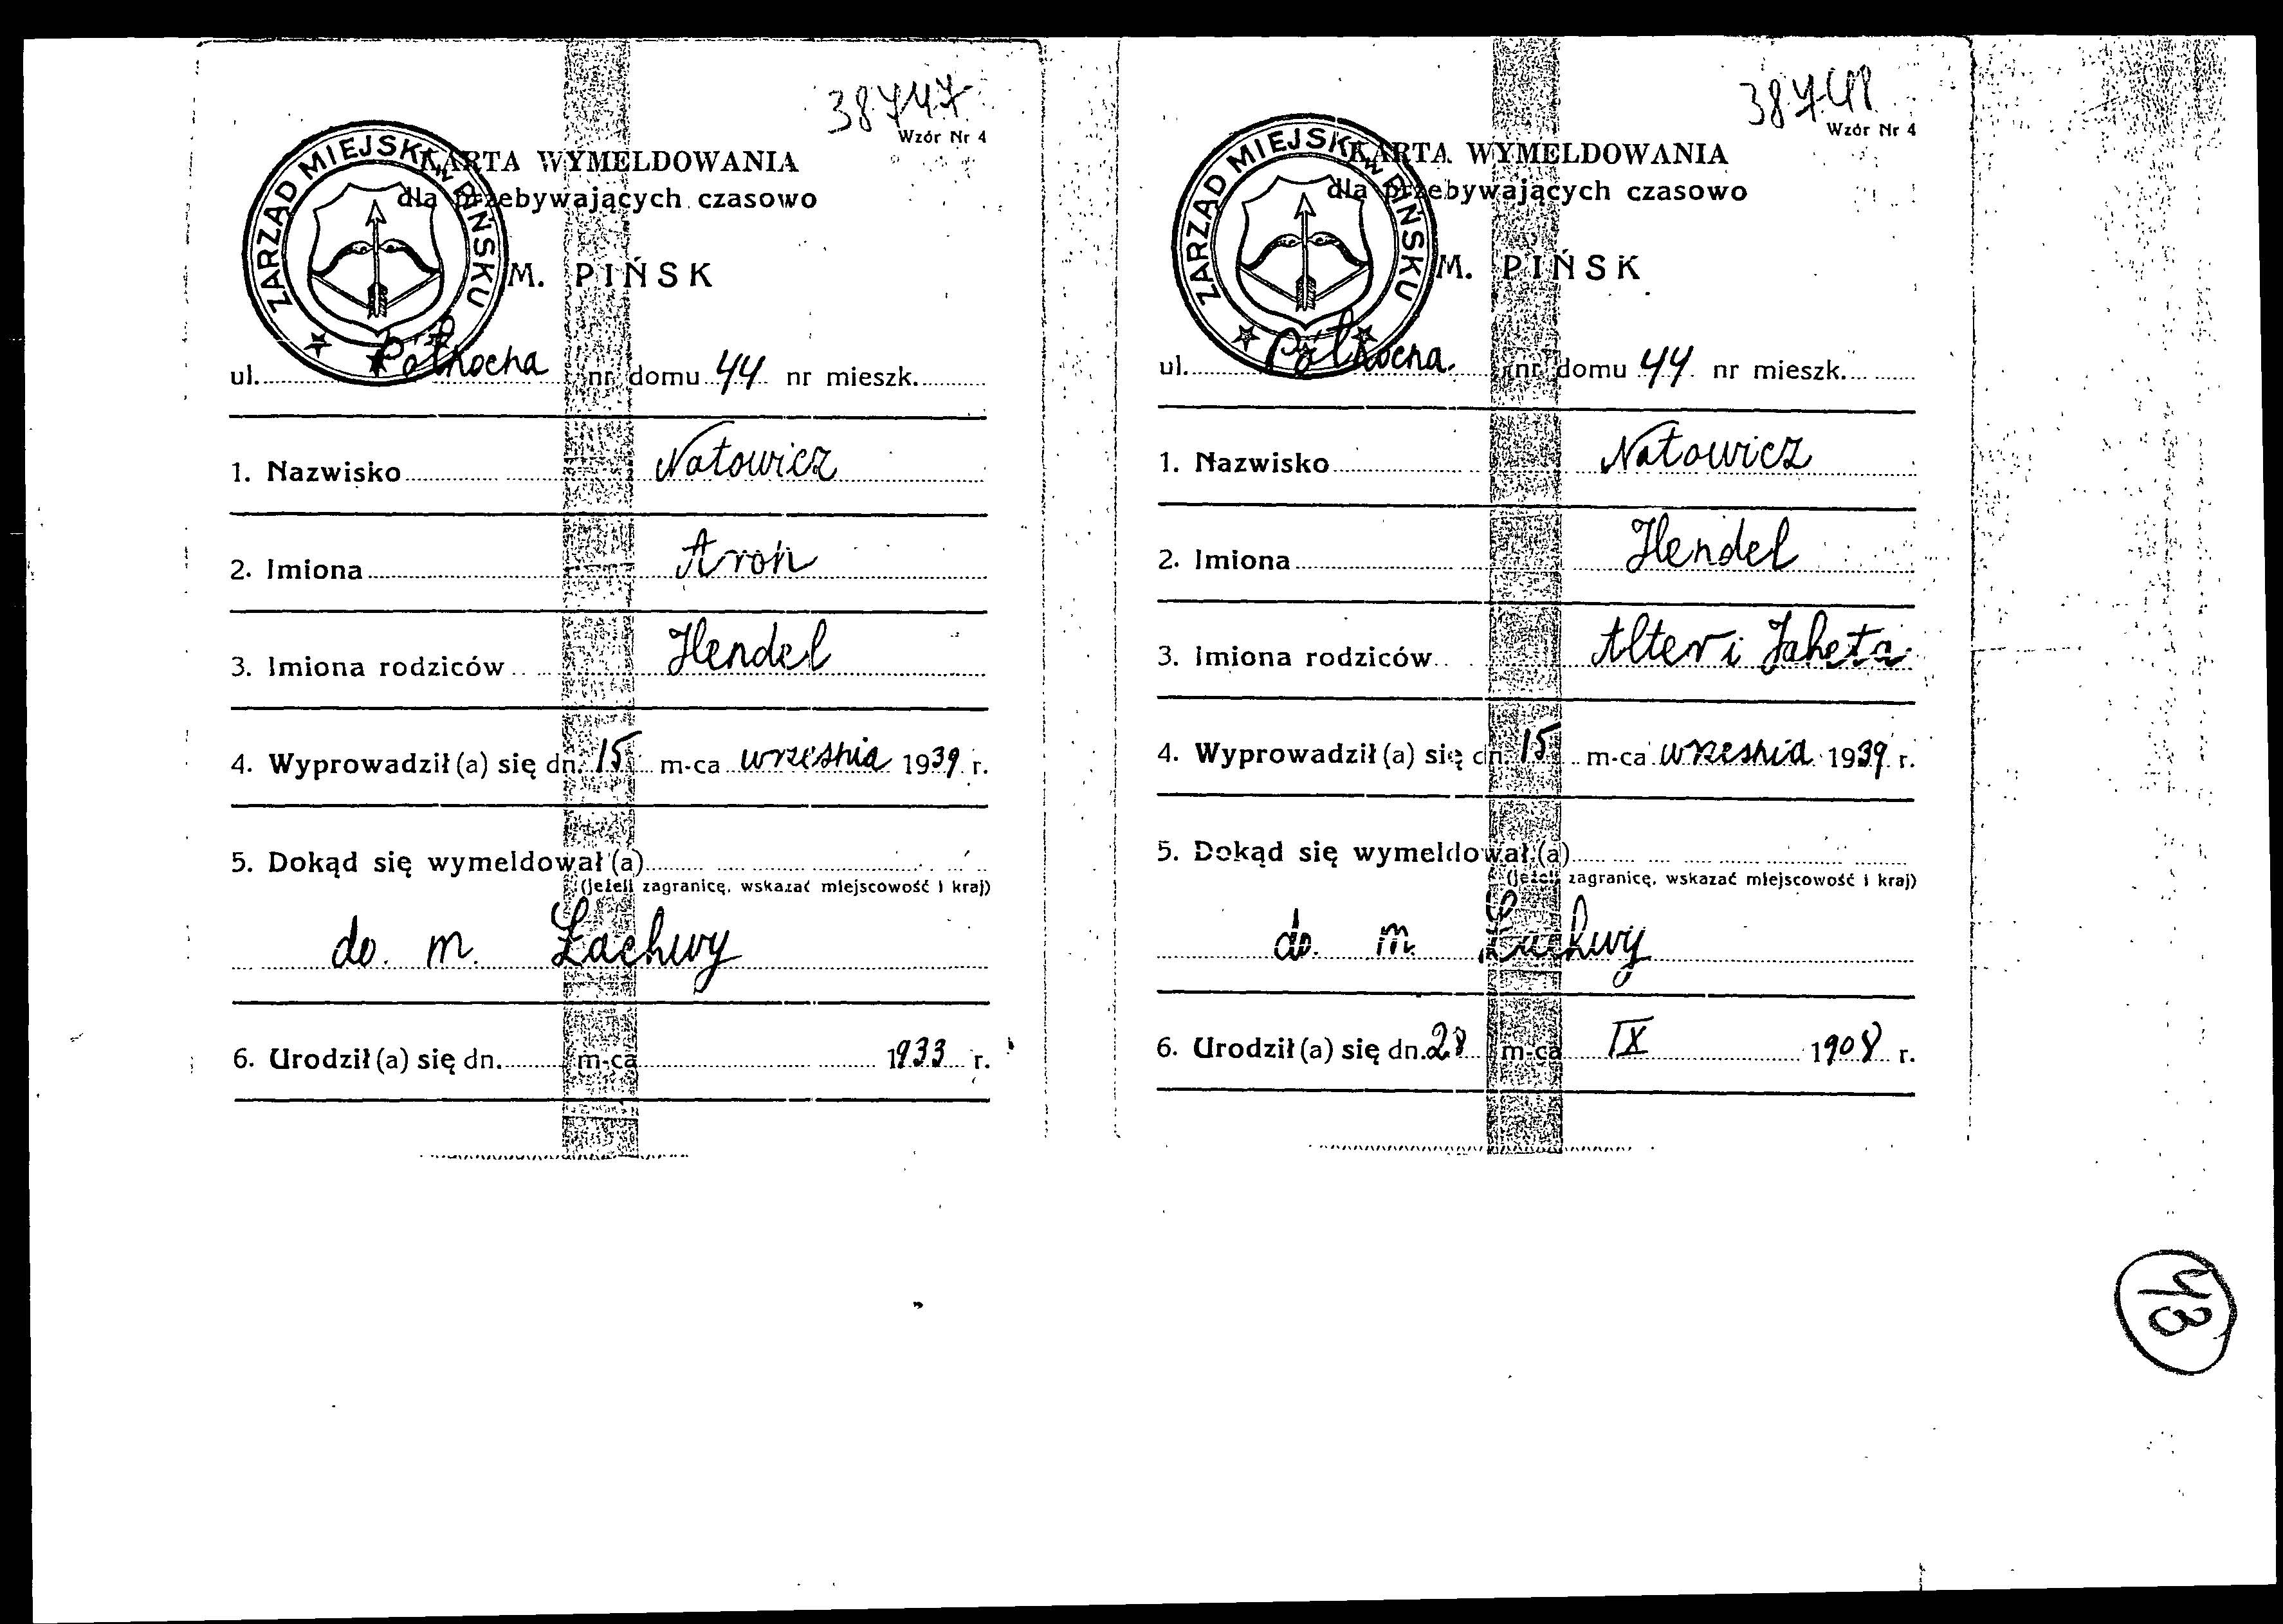 38747
Wzór Nr 4
ZARZĄD MIEJSKI W PIŃSKU
KARTA WYMELDOWANIA
dla przebywających czasowo
M. PIŃSK
ul. Północna nr domu 44 nr mieszk.
1. Nazwisko Natowicz
2. Imiona Aron
3. Imiona rodziców Hendel
4. Wyprowadził (a) się dn. 15 m-ca września 1939 r.
5. Dokąd się wymeldował (a)
(jeżeli zagranicę, wskazać miejscowość i kraj)
do m. Łachwy
6. Urodził (a) się dn. m-ca 1933 r.
38748
Wzór Nr 4
ZARZĄD MIEJSKI W PIŃSKU
KARTA WYMELDOWANIA
dla przebywających czasowo
M. PIŃSK
ul. Północna nr domu 44 nr mieszk.
1. Nazwisko Natowicz
2. Imiona Hendel
3. Imiona rodziców Alter i
4. Wyprowadził (a) się dn. 15 m-ca września 1939 r.
5. Dokąd się wymeldował (a)
(jeżeli zagranicę, wskazać miejscowość i kraj)
do m. Łachwy
6. Urodził (a) się dn. 28 m-ca IX 1908 r.